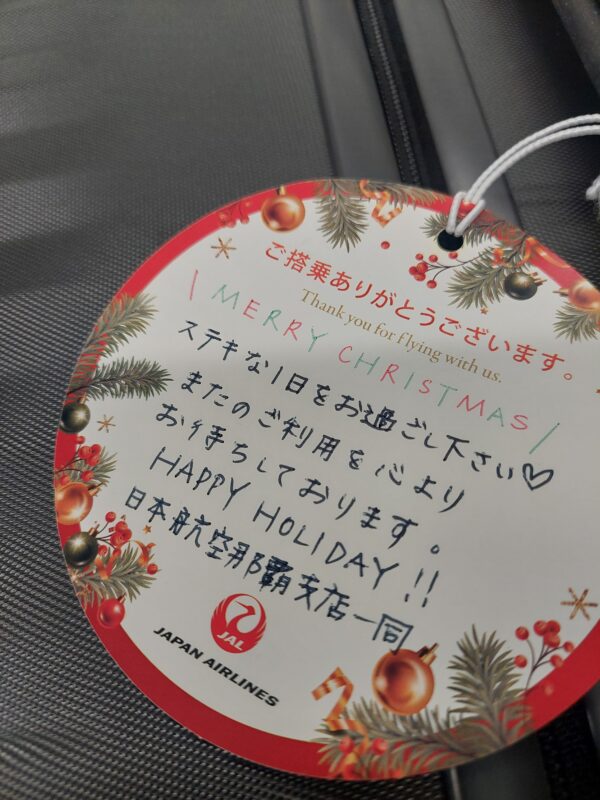 ご搭乗ありがとうございます。
Thank you for flying with us.
\ MERRY CHRISTMAS /
ステキな1日をお過ごし下さい♡
またのご利用を心より
お待ちしております。
HAPPY HOLIDAY!!
日本航空那覇支店一同
JAL
JAPAN AIRLINES